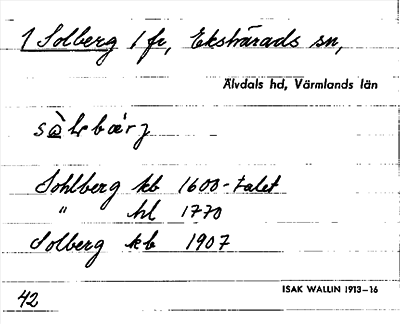 1 Solberg 1 fr, Ekshärads sn,
Älvdals hd, Värmlands län
sòlbærj
Sohlberg kb 1600-talet
" hl 1770
Solberg kb 1907
42
ISAK WALLIN 1913–16